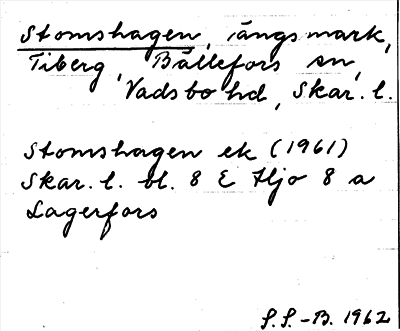 Stomshagen, ängsmark,
Tiberg, Bällefors sn,
Vadsbo hd, Skar. l.
Stomshagen ek (1961)
Skar. l. bl. 8 E Hjo 8 a
Lagerfors
S.S.-B. 1962